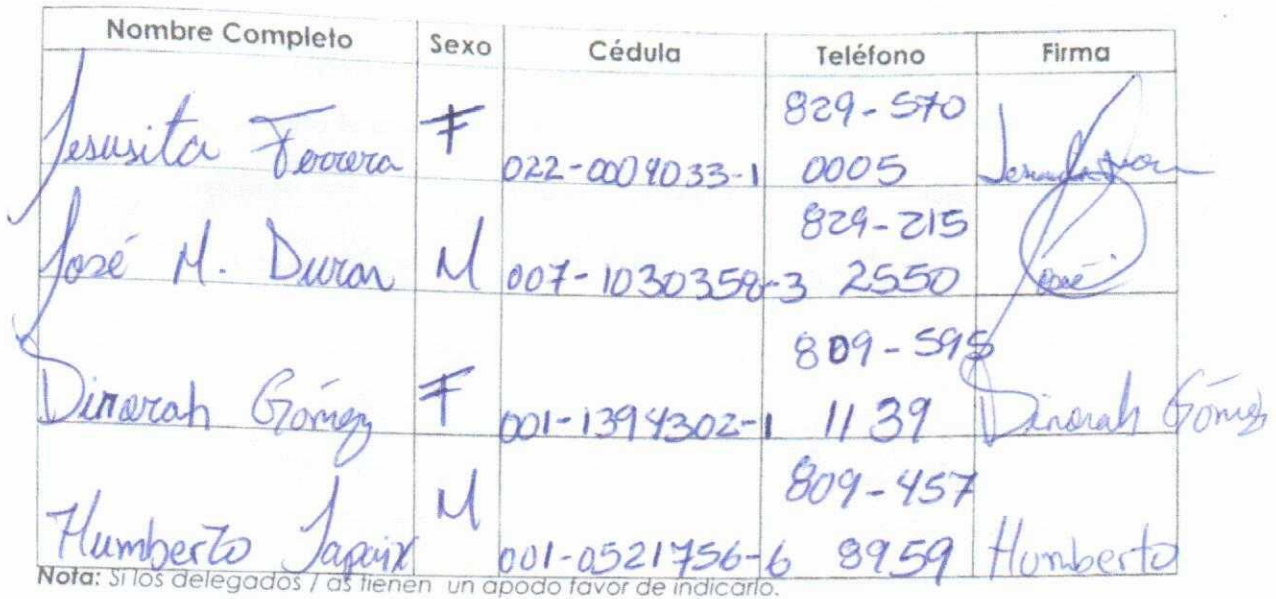 Nombre Completo Sexo Cédula Teléfono Firma
829-570
Jesusita Ferrera F 022-0009033-1 0005
829-215
José M. Duran M 007-1030358-3 2550 José
809-595
Dinorah Gómez F 001-1394302-1 1139 Dinorah Gómez
809-457
Humberto Japaix M 001-0521756-6 8959 Humberto
Nota: Si los delegados / as tienen un apodo favor de indicarlo.